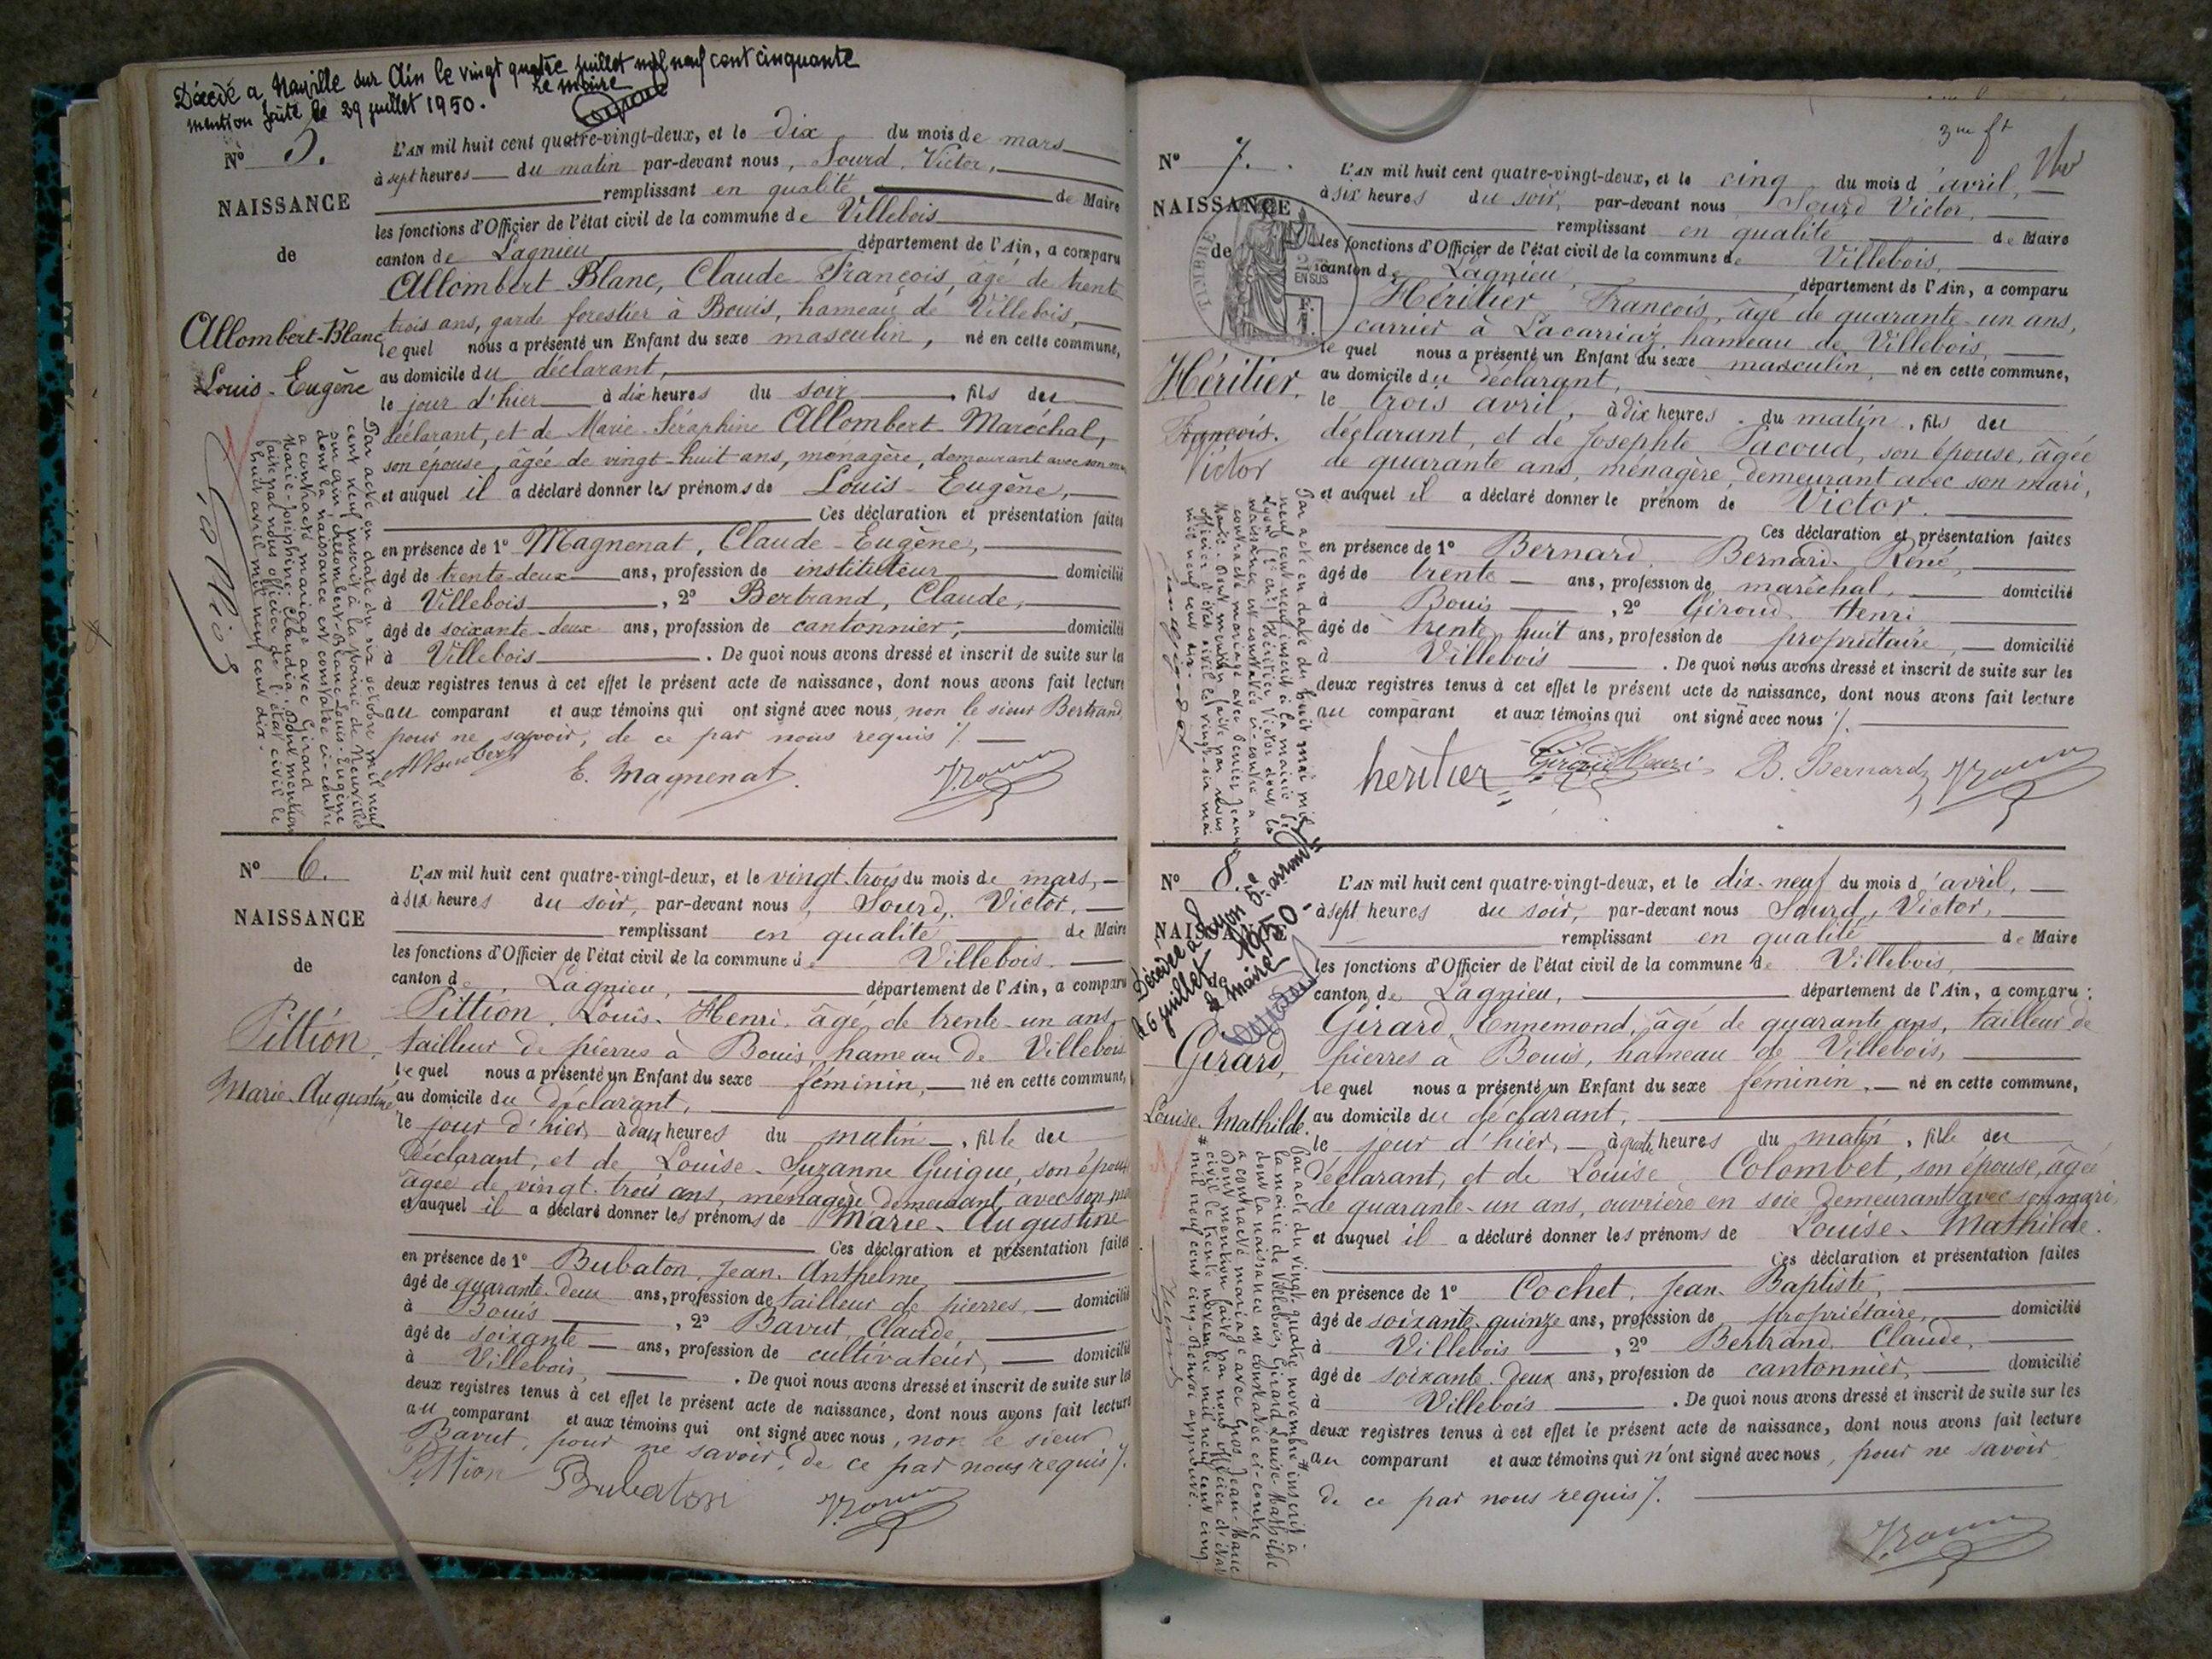 Décédé a Neuville sur Ain le vingt quatre juillet mil neuf cent cinquante
mention faite le 29 juillet 1950. Le maire
N° 5.
NAISSANCE
de
Allombert-Blanc
Louis-Eugène
L'AN mil huit cent quatre-vingt-deux, et le dix du mois de mars
à sept heures du matin par-devant nous, Sourd, Victor,
remplissant en qualité de Maire
les fonctions d'Officier de l'état civil de la commune de Villebois
canton de Lagnieu département de l'Ain, a comparu
Allombert-Blanc, Claude François, âgé de trente
trois ans, garde forestier à Bouis, hameau de Villebois,
lequel nous a présenté un Enfant du sexe masculin, né en cette commune,
au domicile du déclarant,
le jour d'hier à dix heures du soir, fils du
déclarant, et de Marie-Séraphine Allombert-Maréchal,
son épouse, âgée de vingt-huit ans, ménagère, demeurant avec son
et auquel il a déclaré donner les prénoms de Louis-Eugène,
Ces déclaration et présentation faites
en présence de 1° Magnenat, Claude-Eugène,
âgé de trente-deux ans, profession de instituteur domicilié
à Villebois, 2° Bertrand, Claude,
âgé de soixante-deux ans, profession de cantonnier, domicilié
à Villebois. De quoi nous avons dressé et inscrit de suite sur les
deux registres tenus à cet effet le présent acte de naissance, dont nous avons fait lecture
au comparant et aux témoins qui ont signé avec nous, non le sieur Bertrand,
pour ne savoir, de ce par nous requis /.
E. Magnenat
Par acte en date du six octobre mil neuf
cent neuf inscrit à la mairie de Neuville
sur Ain, Allombert-Blanc Louis-Eugène
dont la naissance est constatée ci-contre
a contracté mariage avec Girard
Marie-Joséphine Claudia. Dont mention
faite par nous officier de l'état civil le
huit avril mil neuf cent dix.
N° 6.
NAISSANCE
de
Pittion,
Marie-Augustine
L'AN mil huit cent quatre-vingt-deux, et le vingt-trois du mois de mars,
à six heures du soir, par-devant nous, Sourd, Victor,
remplissant en qualité de Maire
les fonctions d'Officier de l'état civil de la commune de Villebois
canton de Lagnieu, département de l'Ain, a comparu
Pittion, Louis-Henri, âgé de trente-un ans
tailleur de pierres à Bouis, hameau de Villebois
lequel nous a présenté un Enfant du sexe féminin, né en cette commune,
au domicile du déclarant,
le jour d'hier, à heures du matin, fille du
déclarant, et de Louise-Suzanne Guigue, son épouse
âgée de vingt-trois ans, ménagère demeurant avec son
et auquel il a déclaré donner les prénoms de Marie-Augustine
Ces déclaration et présentation faites
en présence de 1° Bubaton, Jean-Anthelme,
âgé de quarante-deux ans, profession de tailleur de pierres, domicilié
à Bouis, 2° Bavut, Claude,
âgé de soixante ans, profession de cultivateur, domicilié
à Villebois, De quoi nous avons dressé et inscrit de suite sur les
deux registres tenus à cet effet le présent acte de naissance, dont nous avons fait lecture
au comparant et aux témoins qui ont signé avec nous, non le sieur
Bavut, pour ne savoir, de ce par nous requis /.
Pittion Bubaton
3me ft
N° 7.
NAISSANCE
de
Héritier,
François.
Victor
TIMBRE
EN SUS
L'AN mil huit cent quatre-vingt-deux, et le cinq du mois d'avril,
à six heures du soir, par-devant nous Sourd Victor,
remplissant en qualité de Maire
les fonctions d'Officier de l'état civil de la commune de Villebois,
canton de Lagnieu, département de l'Ain, a comparu
Héritier François, âgé de quarante-un ans,
carrier à Lacarriaz, hameau de Villebois,
lequel nous a présenté un Enfant du sexe masculin, né en cette commune,
au domicile du déclarant,
le trois avril, à dix heures du matin, fils du
déclarant, et de Josephte Jacoud, son épouse, âgée
de quarante ans, ménagère, demeurant avec son mari,
et auquel il a déclaré donner le prénom de Victor.
Ces déclaration et présentation faites
en présence de 1° Bernard, Bernard-René,
âgé de trente ans, profession de maréchal, domicilié
à Bouis, 2° Giroud Henri
âgé de trente huit ans, profession de propriétaire, domicilié
à Villebois. De quoi nous avons dressé et inscrit de suite sur les
deux registres tenus à cet effet le présent acte de naissance, dont nous avons fait lecture
au comparant et aux témoins qui ont signé avec nous /.
heritier Giroud Henri B. Bernard
Par acte en date du huit mai mil
neuf cent neuf inscrit à la mairie de
Lyon Héritier Victor dont la
naissance est constatée ci-contre a
contracté mariage avec Jeanne
Marie. Dont mention faite par nous
officier d'état civil le vingt-six mai
mil neuf cent
N° 8.
NAISSANCE
de
Décédée à Lyon 5e arrondt
le 6 juillet 1950.
Le maire
Girard,
Louise-Mathilde.
L'AN mil huit cent quatre-vingt-deux, et le dix-neuf du mois d'avril,
à sept heures du soir, par-devant nous Sourd, Victor,
remplissant en qualité de Maire
les fonctions d'Officier de l'état civil de la commune de Villebois,
canton de Lagnieu, département de l'Ain, a comparu:
Girard, Ennemond, âgé de quarante ans, tailleur de
pierres à Bouis, hameau de Villebois,
lequel nous a présenté un Enfant du sexe féminin, né en cette commune,
au domicile du déclarant,
le jour d'hier, à quatre heures du matin, fille du
déclarant, et de Louise Colombet, son épouse, âgée
de quarante-un ans, ouvrière en soie demeurant avec son mari,
et auquel il a déclaré donner les prénoms de Louise-Mathilde.
Ces déclaration et présentation faites
en présence de 1° Cochet, Jean-Baptiste,
âgé de soixante-quinze ans, profession de propriétaire, domicilié
à Villebois, 2° Bertrand, Claude,
âgé de soixante-deux ans, profession de cantonnier, domicilié
à Villebois. De quoi nous avons dressé et inscrit de suite sur les
deux registres tenus à cet effet le présent acte de naissance, dont nous avons fait lecture
au comparant et aux témoins qui n'ont signé avec nous, pour ne savoir
de ce par nous requis /.
Par acte du vingt-quatre novembre inscrit à
la mairie de Villebois, Girard Louise-Mathilde
dont la naissance est constatée ci-contre
a contracté mariage avec Gros Jean-Marie
Dont mention faite par nous officier d'état
civil le trente novembre mil neuf cent cinq
mil neuf cent cinq. Renvoi approuvé.